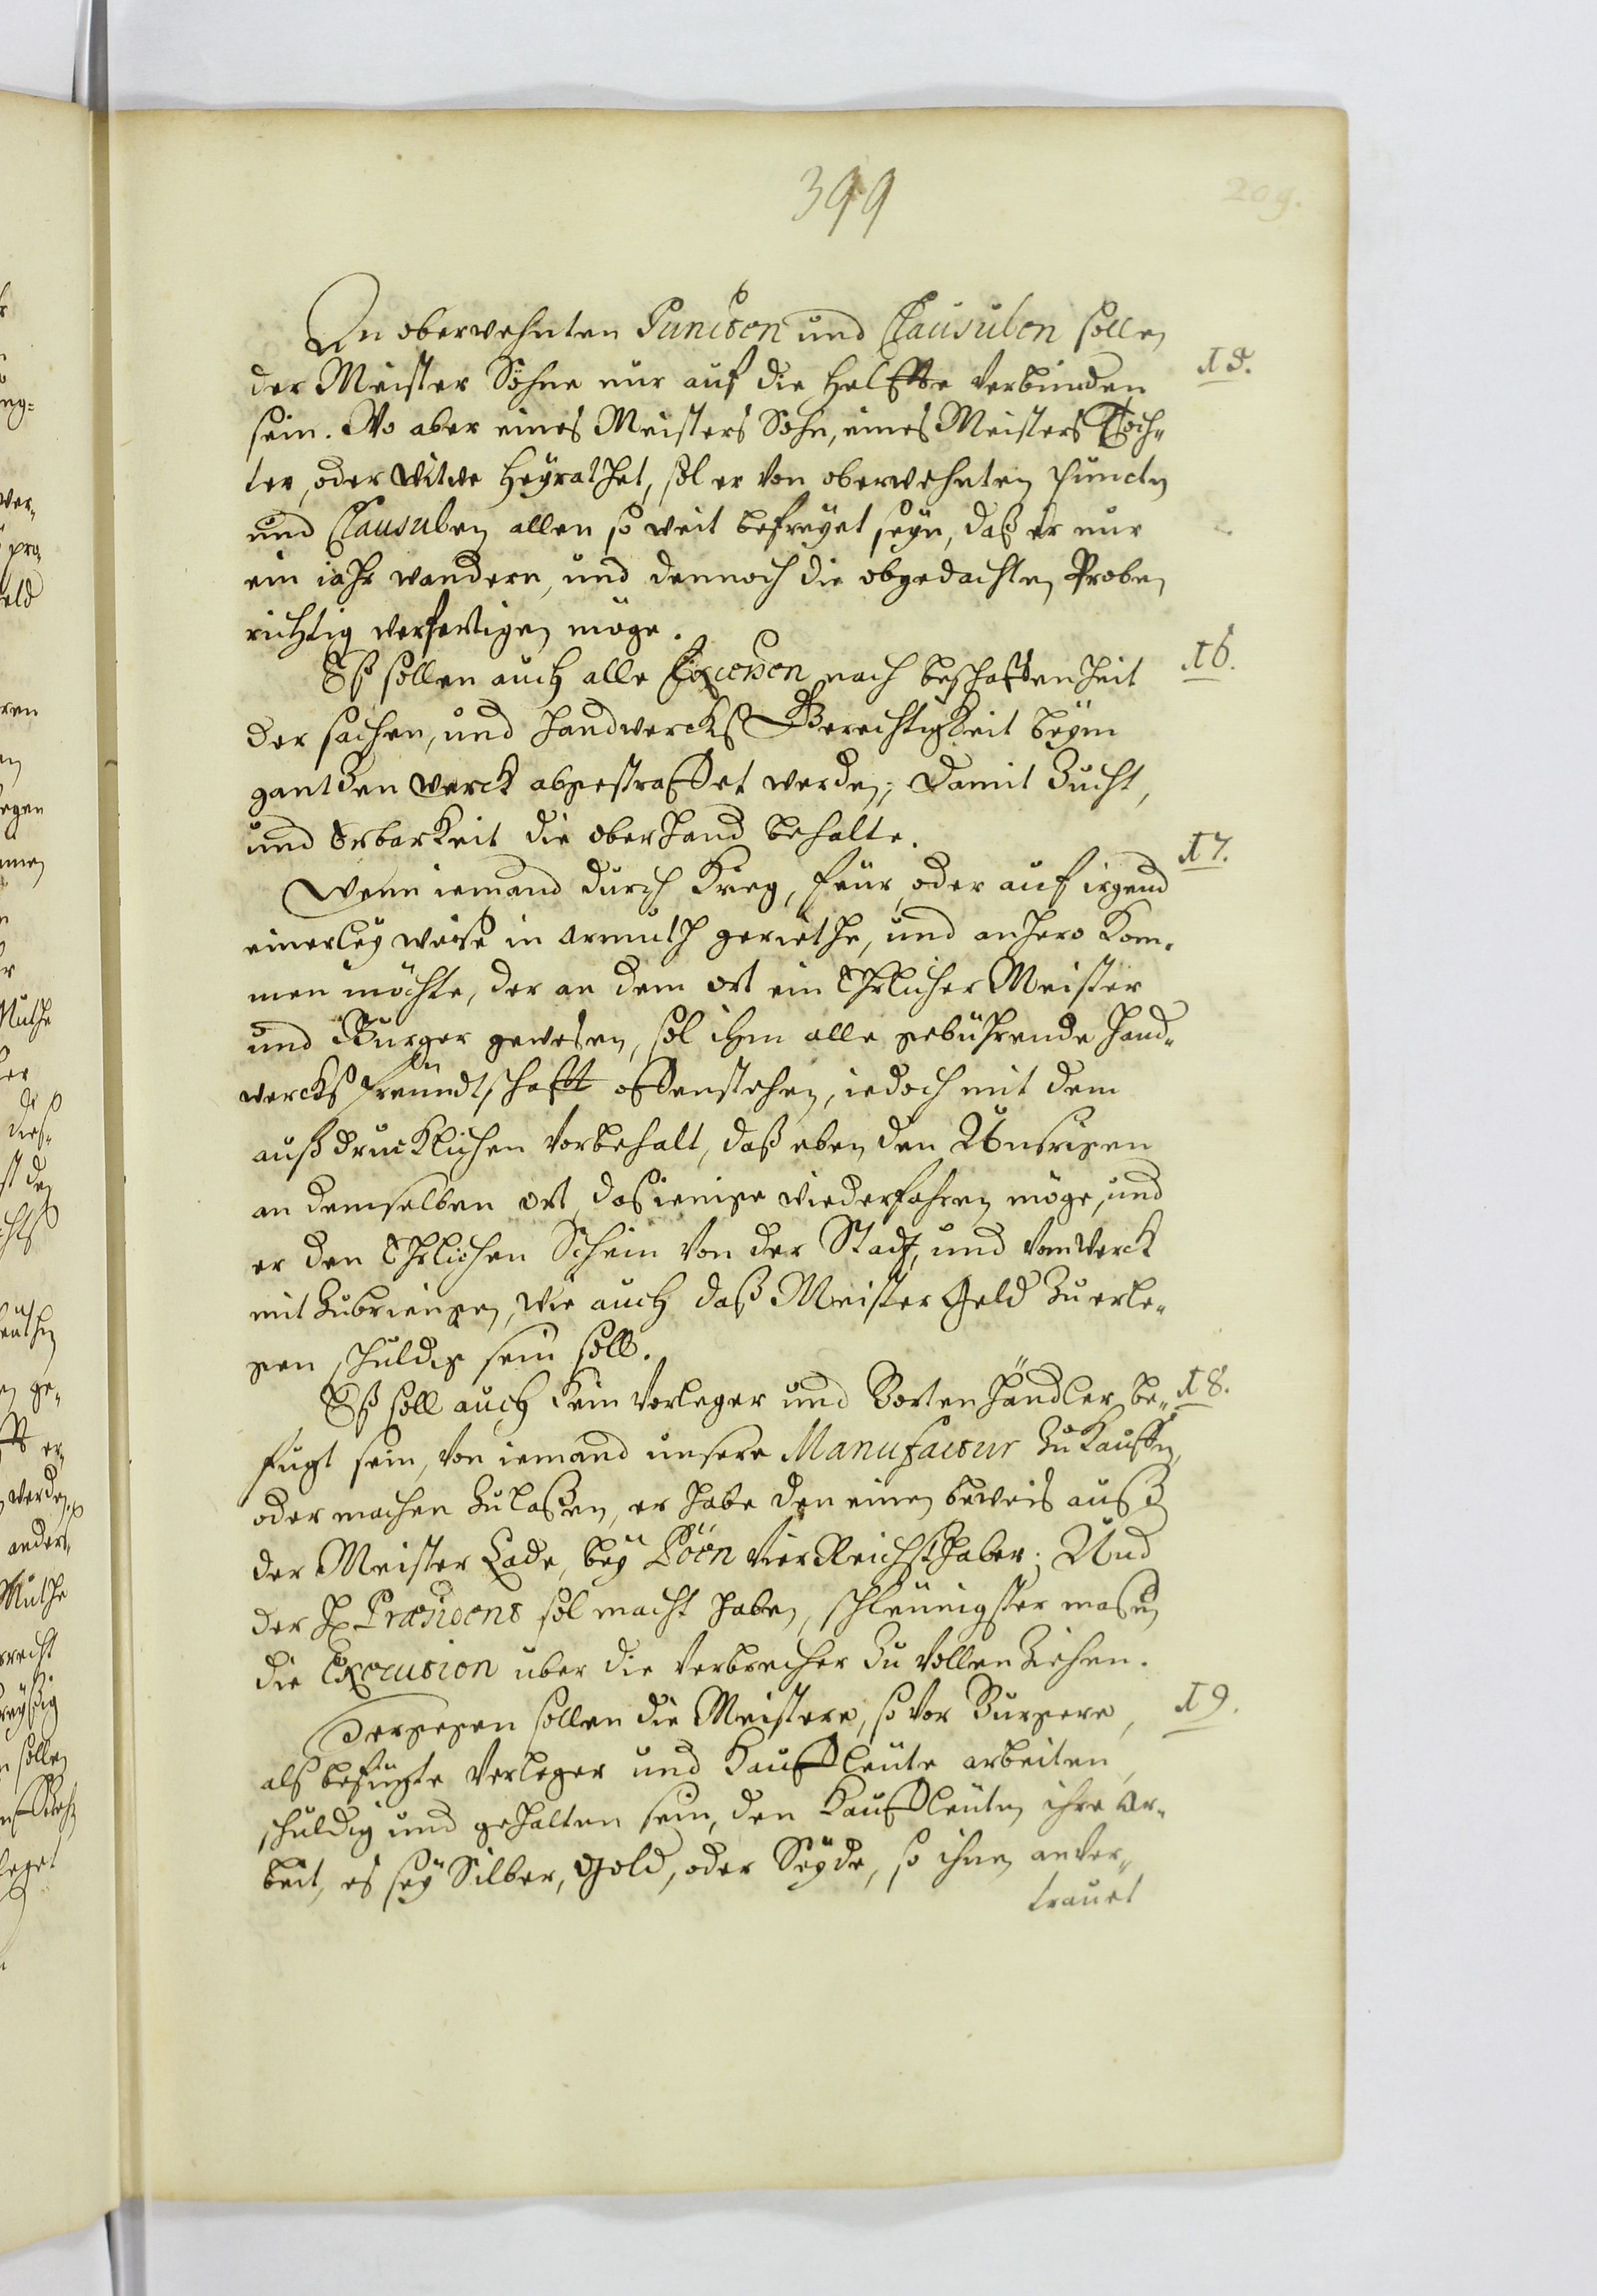 399
209.
In oberwehnten Puncten und Clausulen sollen
15.
der Meister Söhne nur auf die Helffte verbunden
sein. Wo aber eines Meisters Sohn, eines Meisters Toch-
ter, oder Witwe heyrathet, sol er von oberwehnten Puncten
und Clausulen allen so weit befreyet seyn, daß er nur
ein iahr wandern, und dennoch die obgedachten Proben
richtig verfertigen möge.
16.
Eß sollen auch alle Excessen nach beschaffenheit
der sachen, und Handwercks Gerechtigkeit beym
gantzen werck abgestraffet werden; Damit Zucht,
und Erbarkeit die oberhand behalte.
17.
Wenn iemand durch Krieg, feur, oder auf irgend
einerley weise in armuth geriethe, und anhero kom-
men möchte, der an dem ort ein Ehrlicher Meister
und Burger gewesen, sol ihm alle gebührende Hand-
wercks freundtschafft offenstehen, iedoch mit dem
außdrucklichen vorbehalt, daß eben den Unsrigen
an demselben ort dasienige wiederfahren möge, und
er den Ehrlichen Schein von der Stadt, und vom werck
mit zubriengen, wie auch daß Meister Geld zu erle-
gen schuldig sein soll.
18.
Eß soll auch kein Vorleger und Borten Händler be-
fugt sein, von iemand unsere Manufactur zu kauffen,
oder machen zu laßen, er habe den einen beweis auß
der Meister Lade, bey Pöen vier Reichsthaler; Und
der H. Præsident sol macht haben, schleunigster maßen
die Execution uber die Verbrecher zu vollenziehen.
19.
Dergegen sollen die Meistere, so vor Burgere,
als befugte Verleger und Kauffleute arbeiten,
schuldig und gehalten sein, den Kauffleuten ihre Ar-
beit, es sey Silber, Gold, oder Seyde, so ihnen anver-
trauet